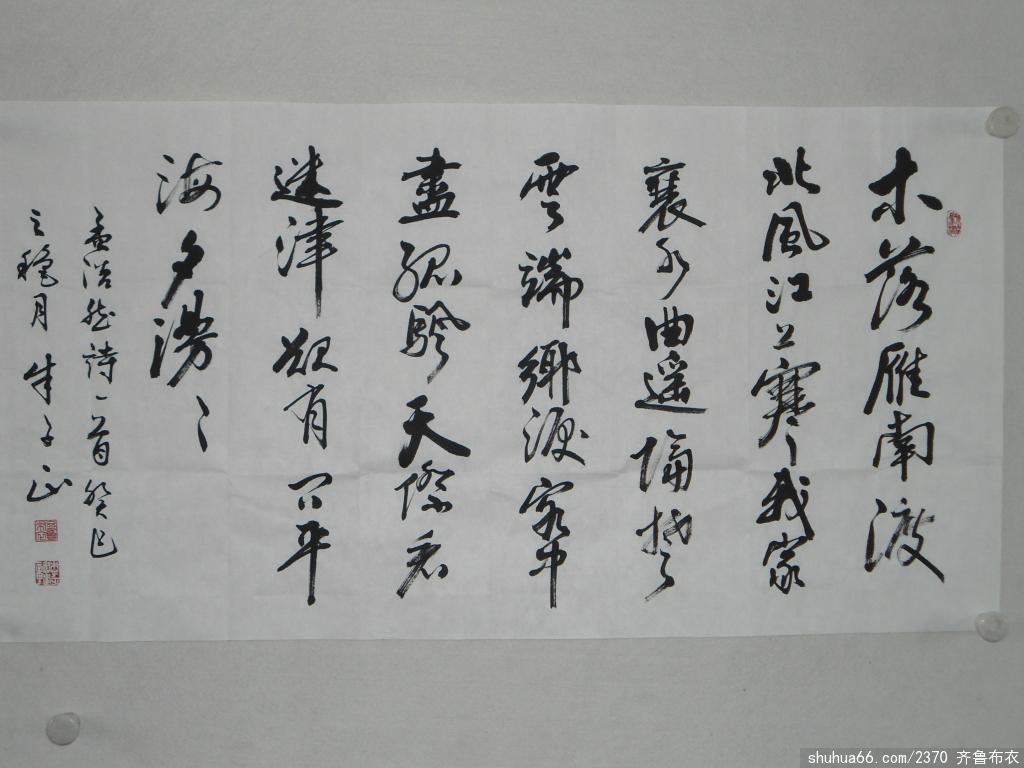 木落雁南渡
北風江上寒我家
襄水曲遥隔楚
雲端鄉淚客中
盡孤帆天際看
迷津欲有问平
海夕漫〻
孟浩然詩一首癸巳
之穐月朱子
shuhua66.com/2370 齐鲁布衣